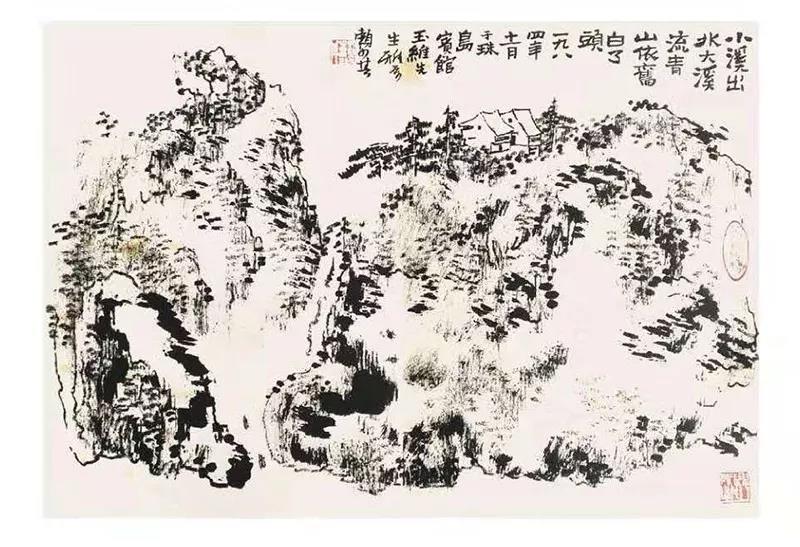 小溪出
水大溪
流青
山依舊
白了
頭
一九八
四年
十一月
于珠
島
賓館
玉維先
生雅
賴少其